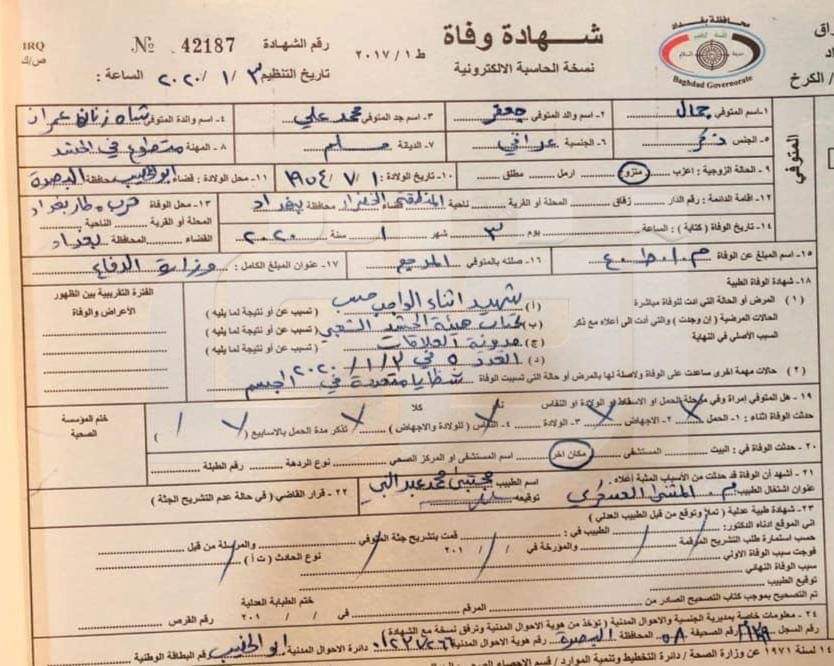 IRQ
ص/ك
№ 42187 رقم الشهادة
تاريخ التنظيم ٣ / ١ / ٢٠٢٠ الساعة :
شهادة وفاة
ط ١ / ٢٠١٧
نسخة الحاسبة الالكترونية
محافظة بغداد
Baghdad Governorate
/ الكرخ
المتوفي
١- اسم المتوفي جمال ٢- اسم والد المتوفي جعفر ٣- اسم جد المتوفي محمد علي ٤- اسم والدة المتوفي شاه زنان عمران
٥- الجنس ذكر ٦- الجنسية عراقي ٧- الديانة مسلم ٨- المهنة متطوع في الحشد
٩- الحالة الزوجية : اعزب متزوج ارمل مطلق ١٠- تاريخ الولادة : ١ / ٧ / ١٩٥٤ ١١- محل الولادة : قضاء ابو الخصيب محافظة البصرة
١٢- اقامة الدائمة : رقم الدار زقاق المحلة أو القرية ناحية المنطقة الخضراء محافظة بغداد
١٣- محل الوفاة قرب مطار بغداد
المحلة أو القرية الناحية
القضاء المحافظة بغداد
١٤- تاريخ الوفاة (كتابة) : الساعة يوم ٣ شهر ١ سنة ٢٠٢٠
١٥- اسم المبلغ عن الوفاة ١٦- صلته بالمتوفي ١٧- عنوان المبلغ الكامل : وزارة الدفاع
١٨- شهادة الوفاة الطبية
الفترة التقريبية بين الظهور الأعراض والوفاة
(١) المرض أو الحالة التي أدت للوفاة مباشرة (أ) شهيد اثناء الواجب حسب (تسبب عن أو نتيجة لما يليه)
الحالات المرضية (إن وجدت) والتي أدت الى أعلاه مع ذكر (ب) كتاب هيئة الحشد الشعبي (تسبب عن أو نتيجة لما يليه)
السبب الأصلي في النهاية (ج) مديرية العلاقات (تسبب عن أو نتيجة لما يليه)
(د) العدد ٥ في ٢ / ١ / ٢٠٢٠
(٢) حالات مهمة اخرى ساعدت على الوفاة ولاصلة لها بالمرض أو حالة التي تسببت الوفاة شظايا متعددة في الجسم
١٩- هل المتوفي إمرأة وفي مرحلة الحمل او الاسقاط او الولادة او النفاس كلا
وفاة أثناء : ١- الحمل ٢- الاجهاض ٣- الولادة ٤- النفاس (للولادة والاجهاض) تذكر مدة الحمل بالاسابيع ( )
ختم المؤسسة الصحية
٢٠- حدثت الوفاة في : البيت المستشفى مكان اخر اسم المستشفى أو المركز الصحي نوع الردهة رقم الطبلة
٢١- أشهد أن الوفاة قد حدثت من الأسباب المثبتة أعلاه
عنوان اشتغال الطبيب م. المثنى العسكري اسم الطبيب مجتبى محمد عبد النبي توقيعه
٢٢- قرار القاضي (في حالة عدم التشريح الجثة)
٢٣- شهادة طبية عدلية (تملأ وتوقع من قبل الطبيب العدلي)
اني الموقع ادناه الدكتور: الطبيب في : قمت بتشريح جثة المتوفي والمرسلة من قبل
حسب استمارة طلب التشريح المرقمة والمؤرخة في / / ٢٠١ نوع الحادث (ت أ)
فوجدت سبب الوفاة الاولي
سبب الوفاة النهائي
توقيع الطبيب
ختم الطبابة العدلية
تم التصحيح بموجب كتاب التصحيح الصادر من المرقم في / / ٢٠١ رقم القرص
٢٤- معلومات خاصة بمديرية الجنسية والاحوال المدنية (تؤخذ من هوية الاحوال المدنية وترفق نسخة مع الشهادة)
رقم السجل رقم الصحيفة المحافظة البصرة رقم هوية الاحوال المدنية دائرة الاحوال المدنية ابو الخصيب رقم البطاقة الوطنية
لسنة ١٩٧١ عن وزارة الصحة / دائرة التخطيط وتنمية الموارد /